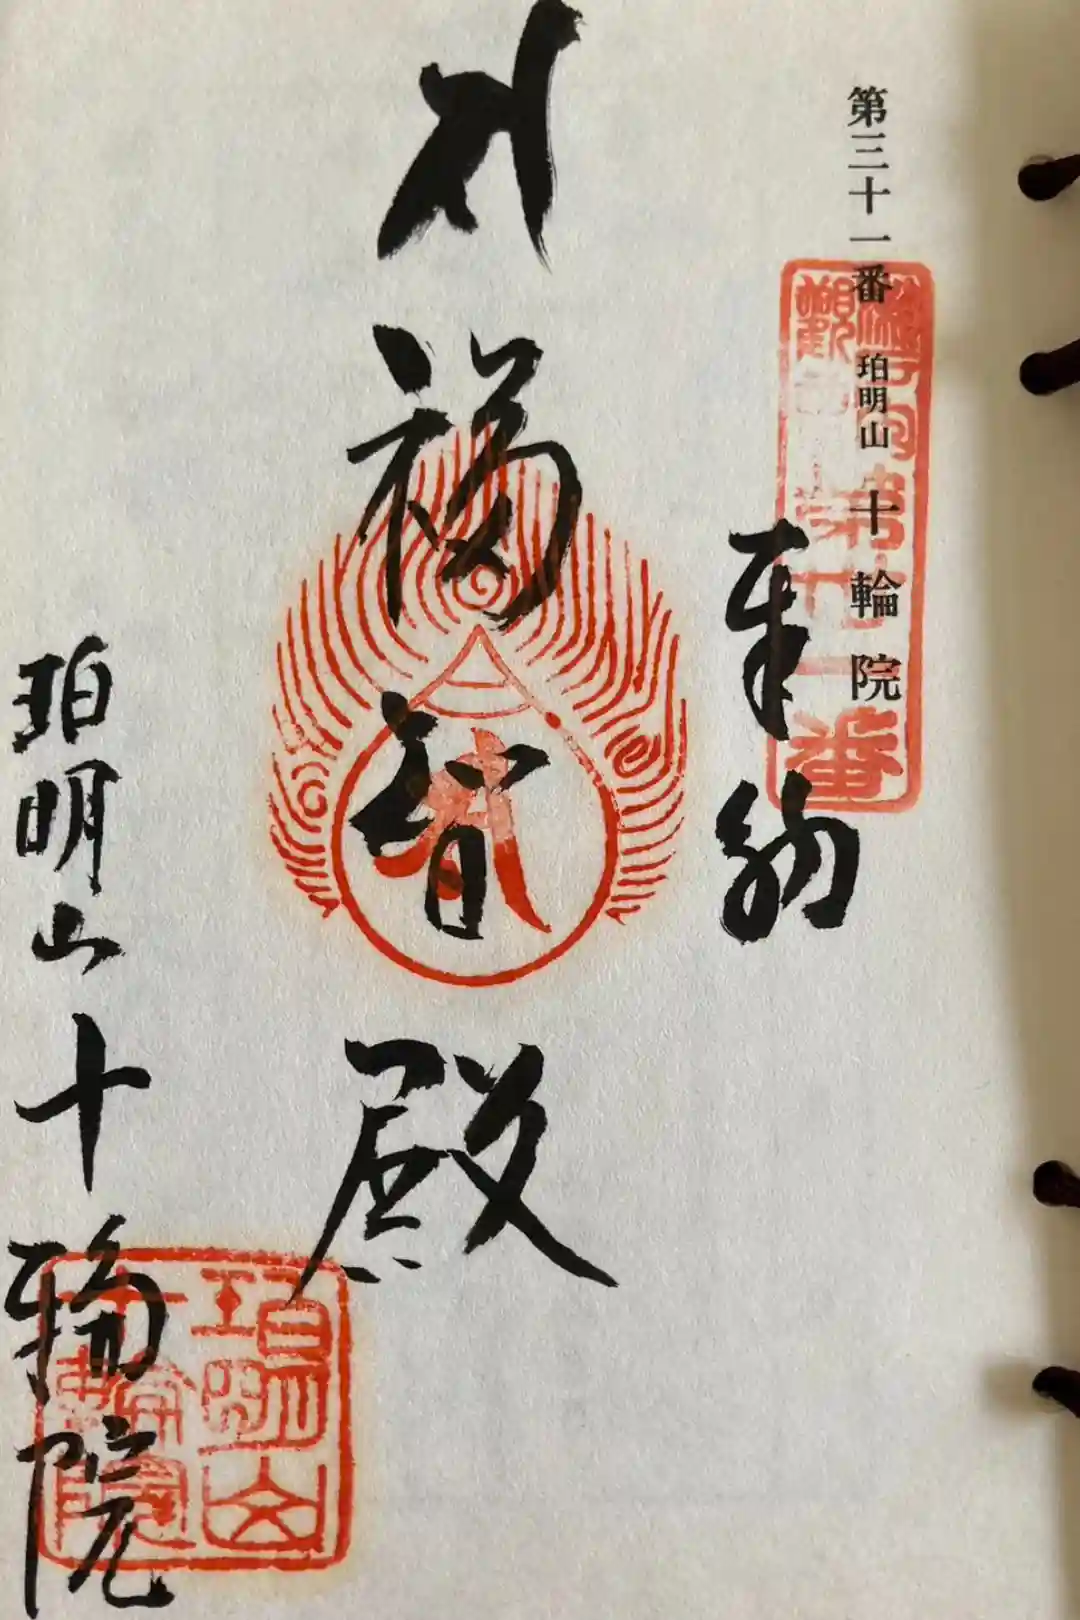 第三十一番 珀明山 十輪院
奉納
福智殿
珀明山十輪院
第十一番
珀明山
十輪院